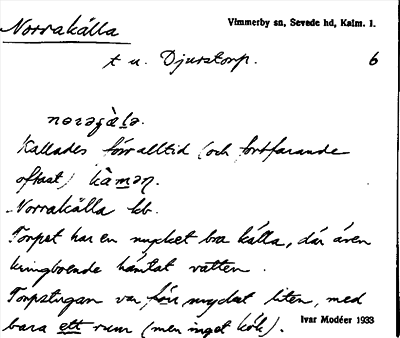 Norrakälla
Vimmerby sn, Sevede hd, Kalm. l.
t u. Djurstorp.
6
Kallades förr alltid (och fortfarande
oftast)
Norrakälla kb.
Torpet har en mycket bra källa, där även
kringboende hämtat vatten.
Torpstugan var förr mycket liten, med
bara ett rum (men inget kök).
Ivar Modéer 1933